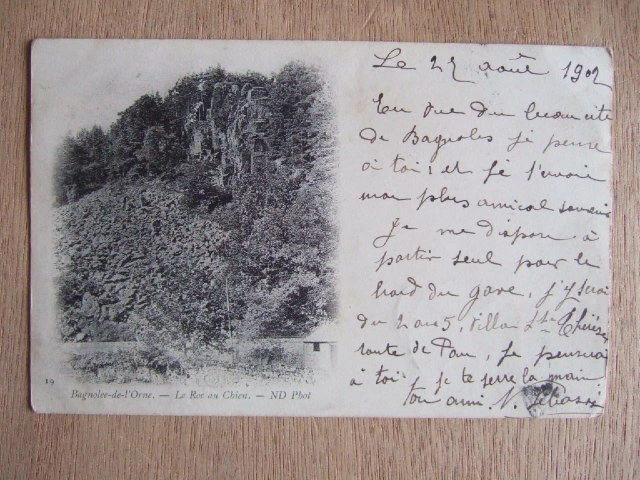 Le 22 août 1902
En vue du beau site
de Bagnoles je pense
à toi ! et je t'envoie
mon plus amical souvenir
Je me dispose à
partir seul pour le
bord du gave, j'y serai
du 2 au 5, villa Ste Thérèse
route de Pau, je penserai
à toi je te serre la main
ton ami.
19
Bagnolee-de-l'Orne. — Le Roc au Chien. — ND Phot